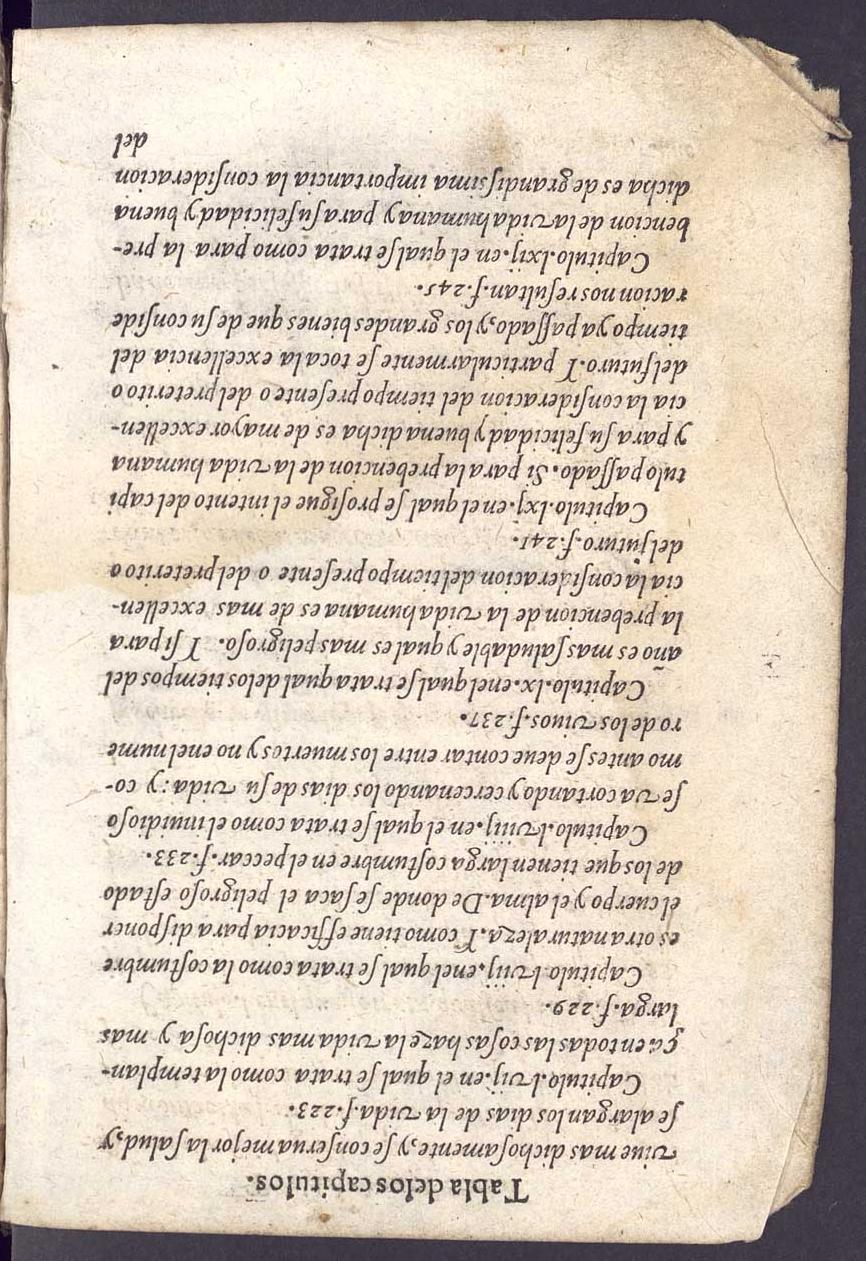 Tabla delos capitulos.
viue mas dichosamente, y se conserua mejor la salud, y
se alargan los dias de la vida.f.223.
Capitulo.lvij.en el qual se trata como la templan-
ça en todas las cosas haze la vida mas dichosa y mas
larga.f.229.
Capitulo.lviij.enel qual se trata como la costumbre
es otra naturaleza.Y como tiene efficacia para disponer
el cuerpo y el alma.De donde se saca el peligroso estado
de los que tienen larga costumbre en el peccar.f.233.
Capitulo.lviiij.en el qual se trata como el inuidioso
se va cortando y cercenando los dias de su vida: y co-
mo antes se deue contar entre los muertos y no enel nume
ro de los viuos.f.237.
Capitulo.lx.enel qual se trata qual delos tiempos del
año es mas saludable y qual es mas peligroso. Y si para
la prebencion de la vida humana es de mas excellen-
cia la consideracion del tiempo presente o del preterito o
del futuro.f.241.
Capitulo.lxj.enel qual se prosigue el intento del capi
tulo passado. Si para la prebencion de la vida humana
y para su felicidad y buena dicha es de mayor excellen-
cia la consideracion del tiempo presente o del preterito o
del futuro.Y particularmente se toca la excellencia del
tiempo ya passado, y los grandes bienes que de su conside
racion nos resultan.f.245.
Capitulo.lxij.en el qual se trata como para la pre-
bencion de la vida humana y para su felicidad y buena
dicha es de grandissima importancia la consideracion
del